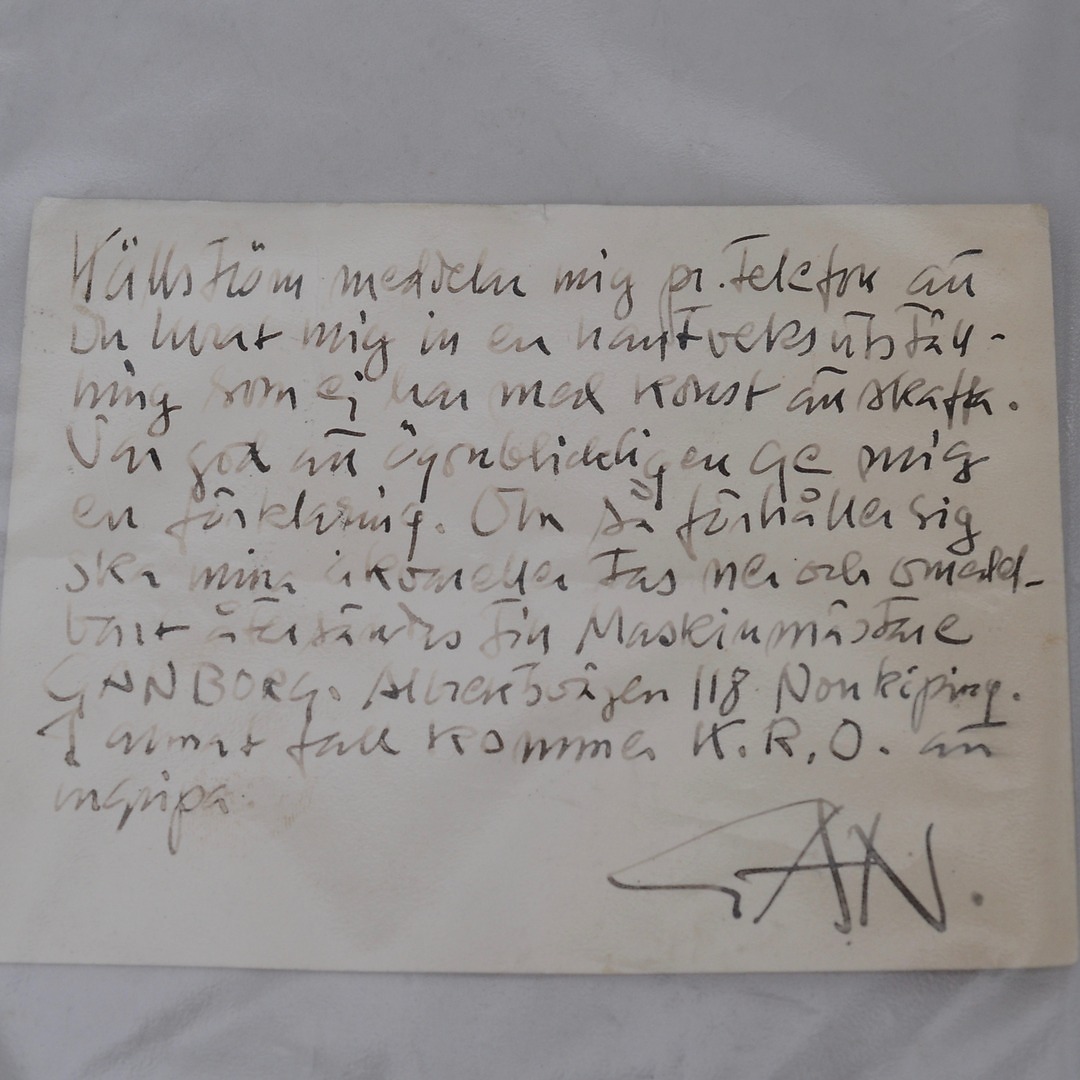 Källström meddelar mig pr. Telefon att
Du lurat mig in en hantveksutställ-
ning som ej har med konst att skaffa.
Var god att ögonblickligen ge mig
en förklaring. Om så förhåller sig
ska mina akvareller tas ner och omedel-
bart återsändas till Maskinmästare
GANBORG. Albrektsvägen 118 Norrköping.
I annat fall kommer K.R.O. att
ingripa.
GAN.